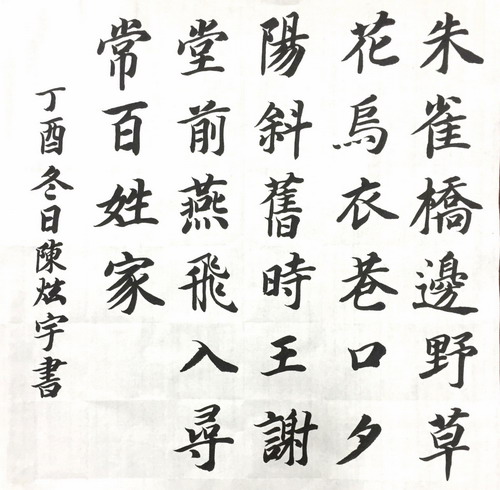 朱雀橋邊野草
花烏衣巷口夕
陽斜舊時王謝
堂前燕飛入尋
常百姓家
丁酉冬日陳炫宇書